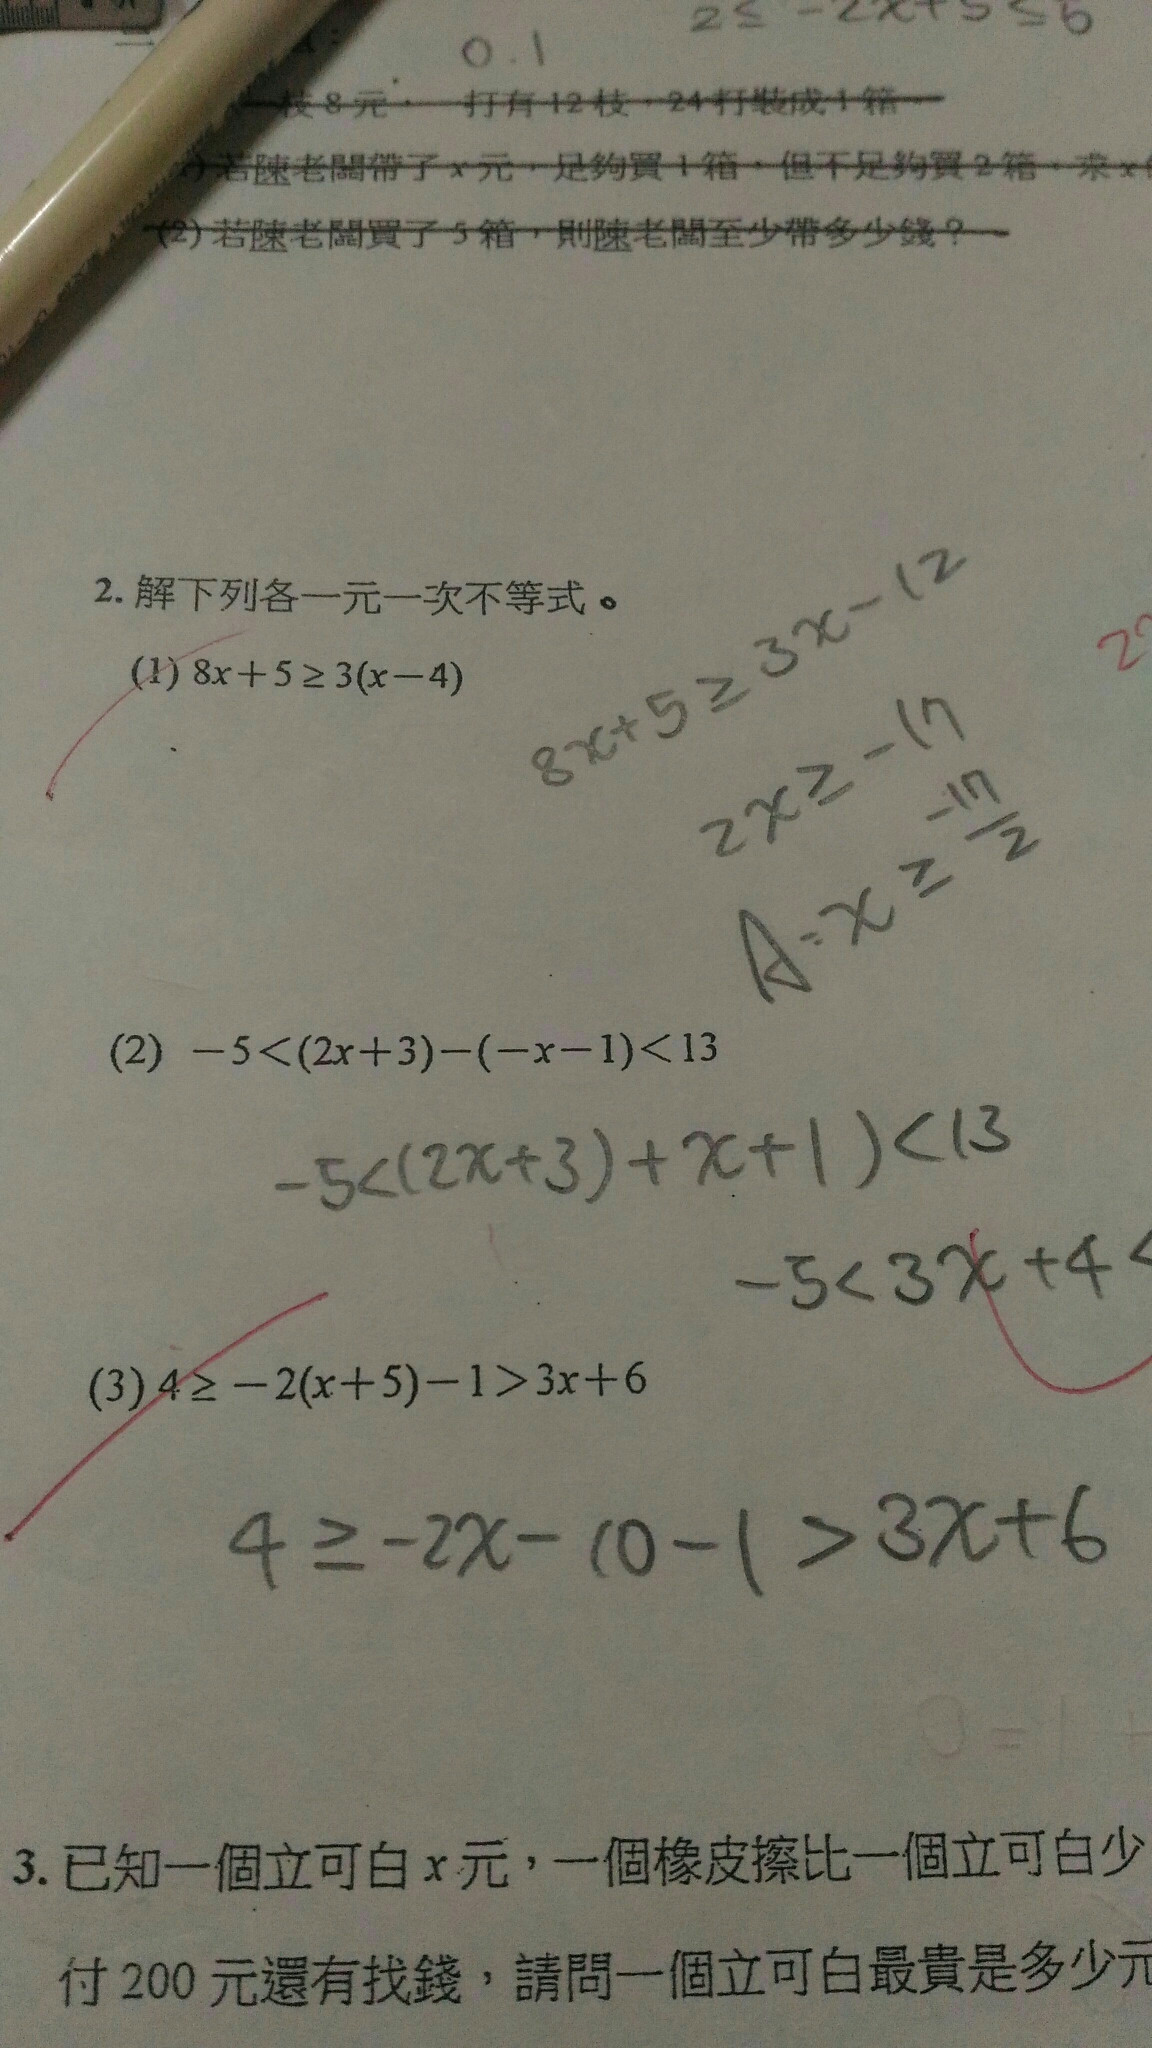 2≤ -2x+5≤5
0.1
枝8元，一打有12枝，24打裝成1箱。
若陳老闆帶了x元，足夠買1箱，但不足夠買2箱，求x
(2)若陳老闆買了5箱，則陳老闆至少帶多少錢？
2.解下列各一元一次不等式。
(1) 8x+5≥3(x-4)
8x+5≥3x-12
2x≥-17
A=x≥-17/2
(2) -5<(2x+3)-(-x-1)<13
-5<(2x+3)+x+1)<13
-5<3x+4<
(3) 4≥-2(x+5)-1>3x+6
4≥-2x-10-1>3x+6
3.已知一個立可白x元，一個橡皮擦比一個立可白少
付200元還有找錢，請問一個立可白最貴是多少元